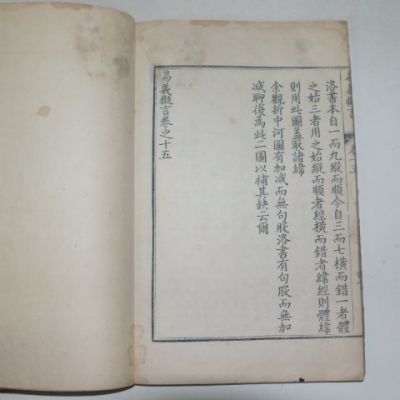 洛書本自一而九縱而順今自三而七橫而錯一者體
之始三者用之始縱而順者經橫而錯者緯經則體緯
則用此圖蓋取諸緯
余觀折中河圖有加減而無句股洛書有句股而無加
減聊復爲此二圖以補其缺云爾
易義擬言卷之十五